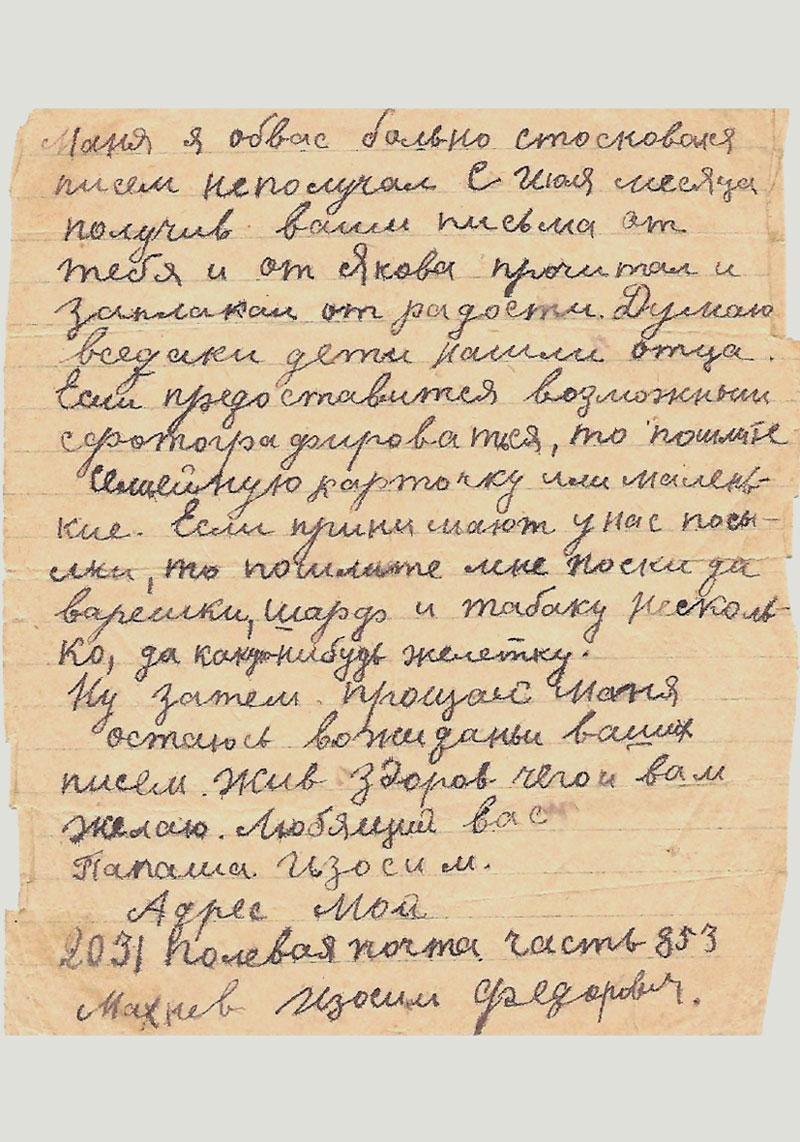 Маня я обвас больно стосковался
писем неполучал С Июля месяца
получив ваши письма от
тебя и от Якова прочитал и
заплакал от радости. Думаю
вседаки дети нашли отца.
Если предоставится возможным
сфотографироваться, то пошлите
семейную карточку или малень-
кие. Если принимают у нас посы-
лки, то пошлите мне носки да
варешки, шарф и табаку несколь-
ко, да какую-нибудь желетку.
Ну затем прощай Маня
остаюсь вожиданьи ваших
писем. Жив здоров чего и вам
желаю. Любящий вас
Папаша Изосим.
Адрес Мой
2031 Полевая почта часть 853
Махнев Изосим Федорович.